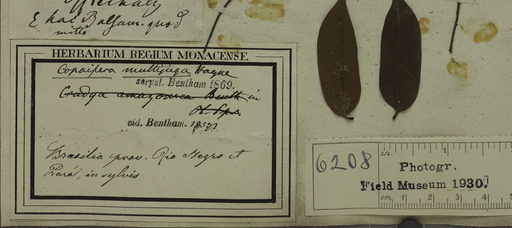 E hac Balsam. quod
HERBARIUM REGIUM MONACENSE.
Copaifera multijuga Hayne
serpst. Bentham 1869.
Cradya amazonica Benth in
vid. Bentham.
Brasilia prov. Rio Negro et
Pará, in sylvis
6208
in.
Photogr.
Field Museum 1930.
cm. 1 2 3 4 5